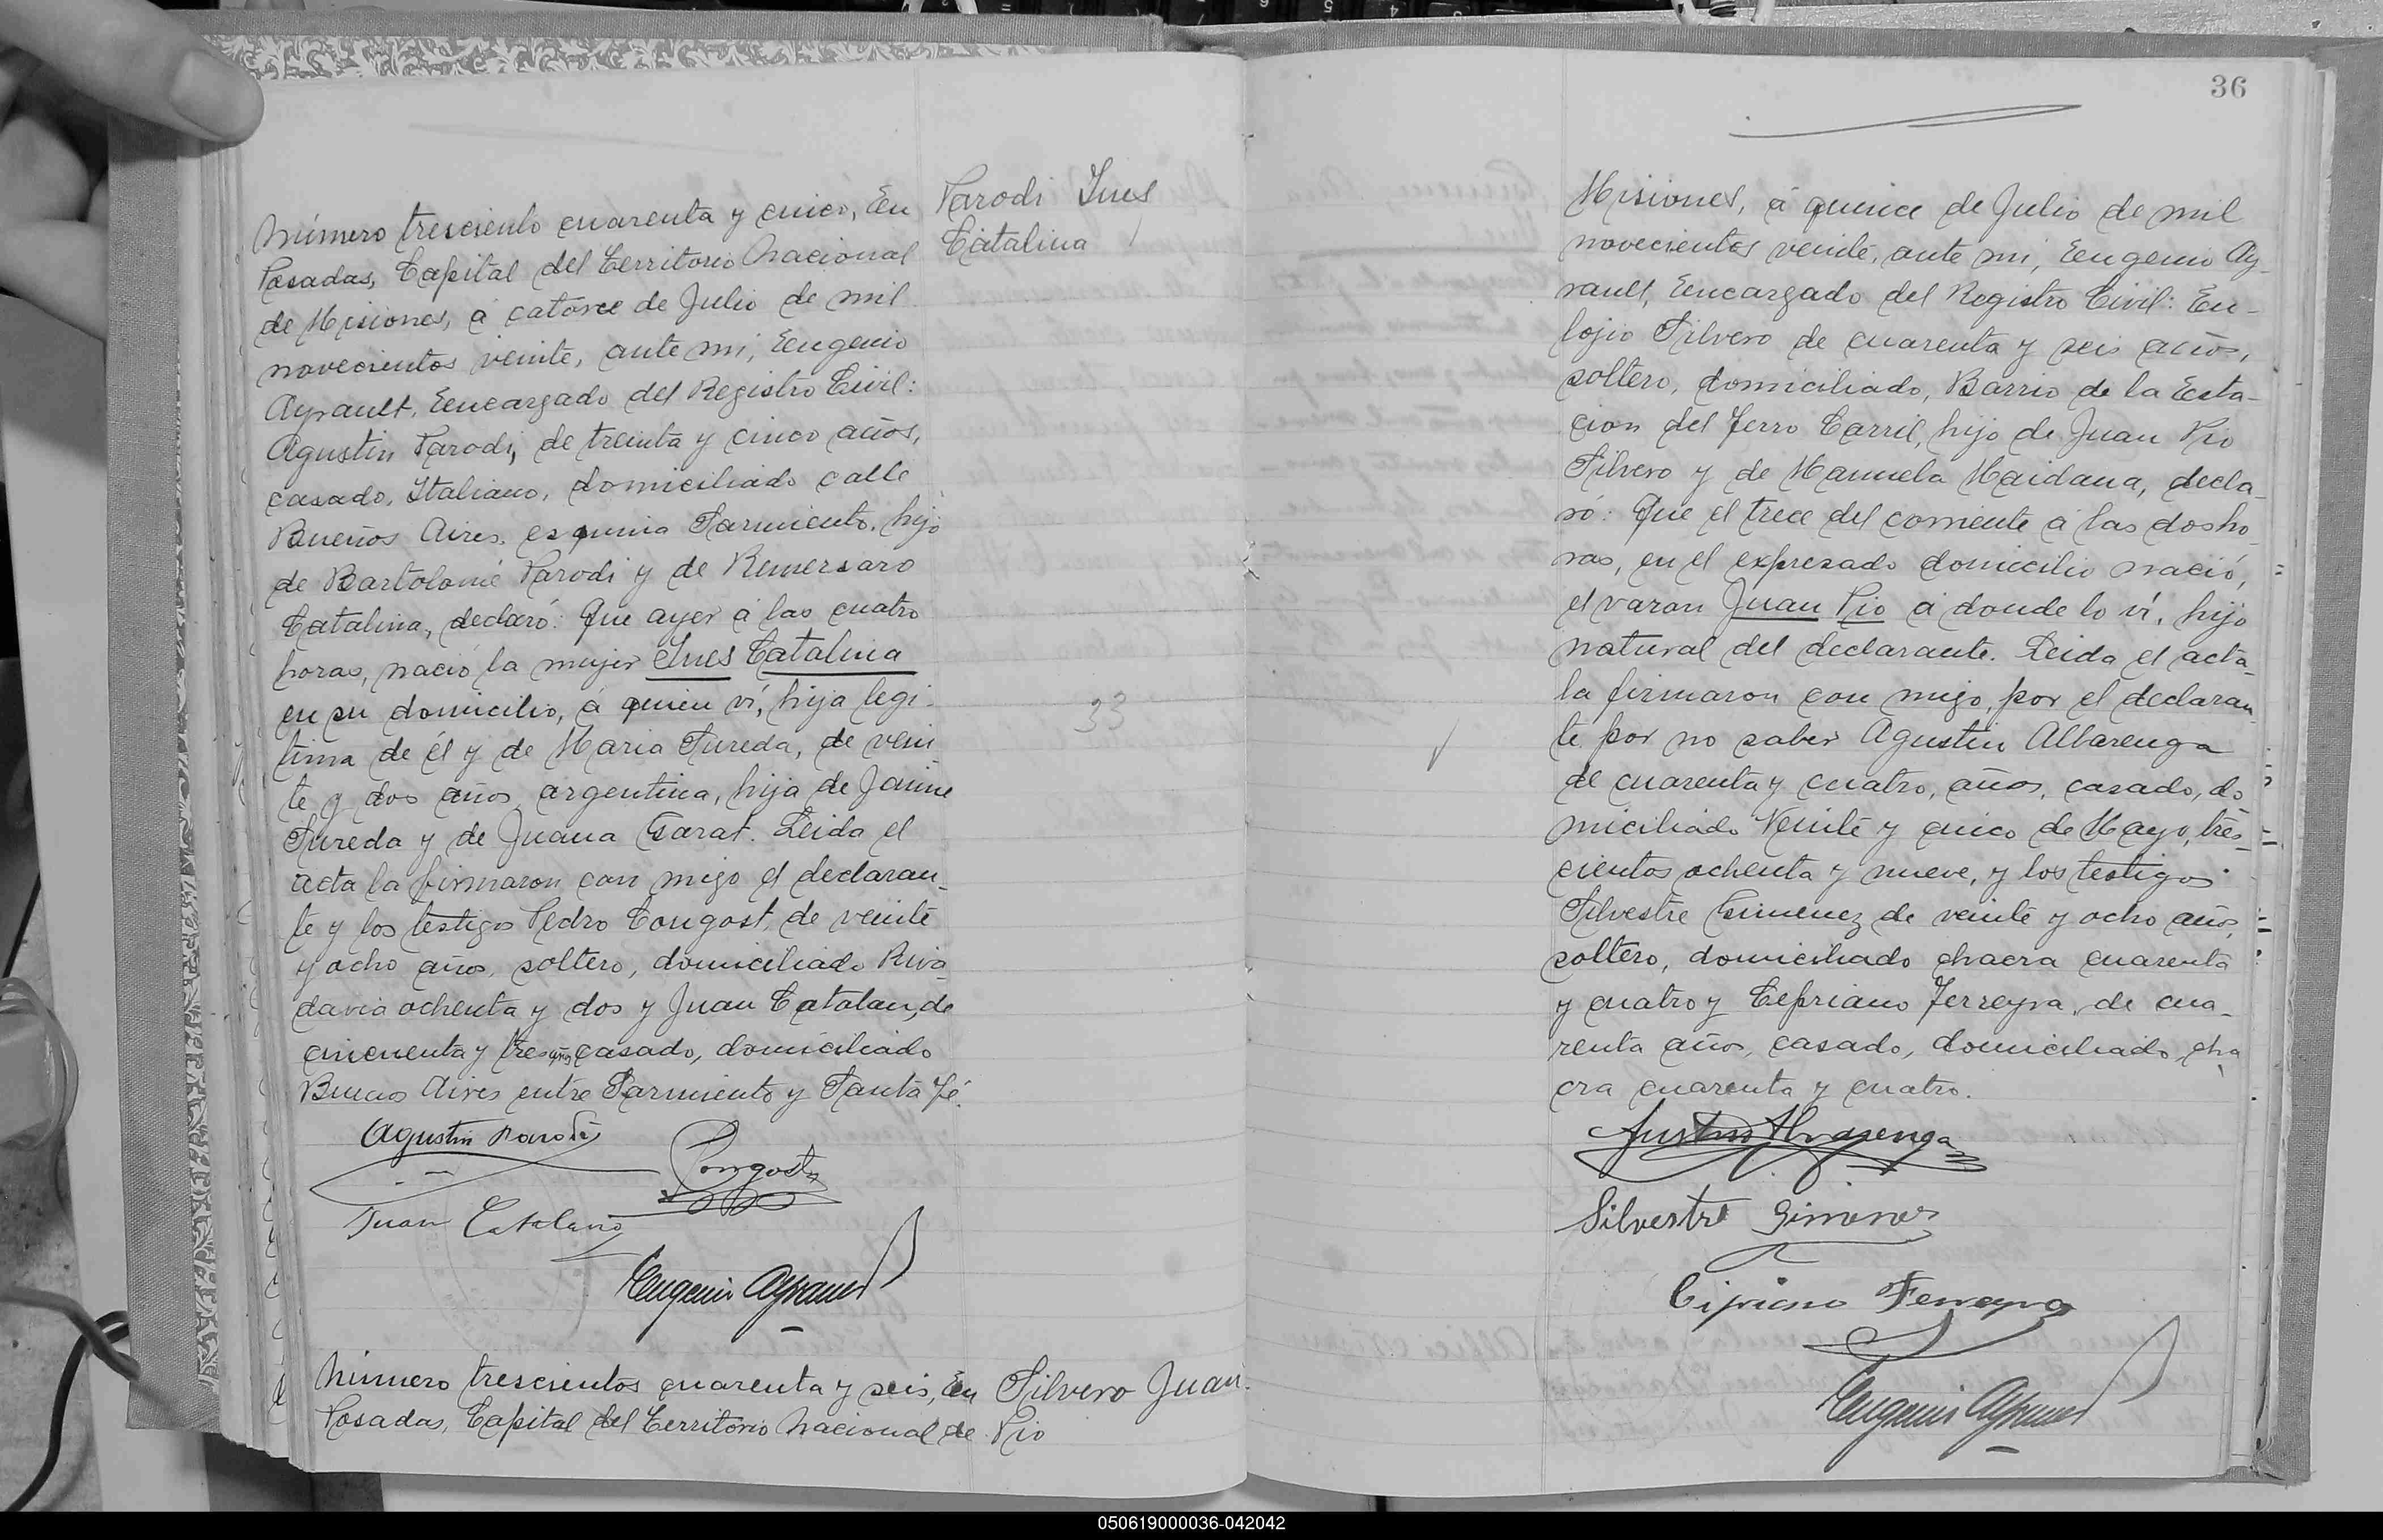 Número trescients cuarenta y cinco, En
Posadas, Capital del Territorio Nacional
de Misiones, á catorce de Julio de mil
novecientos veinte, ante mi, Eugenio
Ayrault, Encargado del Registro Civil:
Agustin Parodi, de treinta y cinco años,
casado, Italiano, domiciliado calle
Buenos Aires esquina Sarmiento, hijo
de Bartolomé Parodi y de
Catalina, declaró: Que ayer á las cuatro
horas, nació la mujer Ines Catalina
en su domicilio, á quien ví, hija legi-
tima de él y de Maria Sureda, de vein
te y dos años argentina, hija de Jaime
Sureda y de Juana Garat. Leida el
acta la firmaron con migo el declaran-
te y los testigos Pedro Congost, de veinte
y ocho años, soltero, domiciliado Riva-
davia ochenta y dos y Juan Catalan, de
cincuenta y tres años casado, domiciliado
Buenos Aires entre Sarmiento y Santa Fé.
Agustin Parodi
Congost
Juan Catalano
Eugenio Ayrault
Parodi Ines
Catalina
33
Número trescientos cuarenta y seis, En
Posadas, Capital del Territorio Nacional de
Silvero Juan
Pio
36
Misiones, á quince de Julio de mil
novecientos veinte, ante mi, Eugenio Ay-
rault, Encargado del Registro Civil: Eu-
lojio Silvero de cuarenta y seis años,
soltero, domiciliado, Barrio de la Esta-
cion del Ferro Carril, hijo de Juan Pio
Silvero y de Manuela Maidana, decla-
ró: Que el trece del corriente á las dos ho-
ras, en el expresado domicilio nació,
el varon Juan Pio á donde lo ví, hijo
natural del declarante. Leida el acta
la firmaron con migo, por el declaran-
te por no saber Agustin Albarenga
de cuarenta y cuatro, años, casado, do-
miciliado Veinte y cinco de Mayo, tres-
cientos ochenta y nueve, y los testigos
Silvestre Gimenez de veinte y ocho años,
soltero, domiciliado chacra cuarenta
y cuatro y Cepriano Ferreyra, de cua-
renta años, casado, domiciliado, cha
cra cuarenta y cuatro.
Silvestre Gimenes
Cipriano Ferreyra
Eugenio Ayrault
050619000036-042042